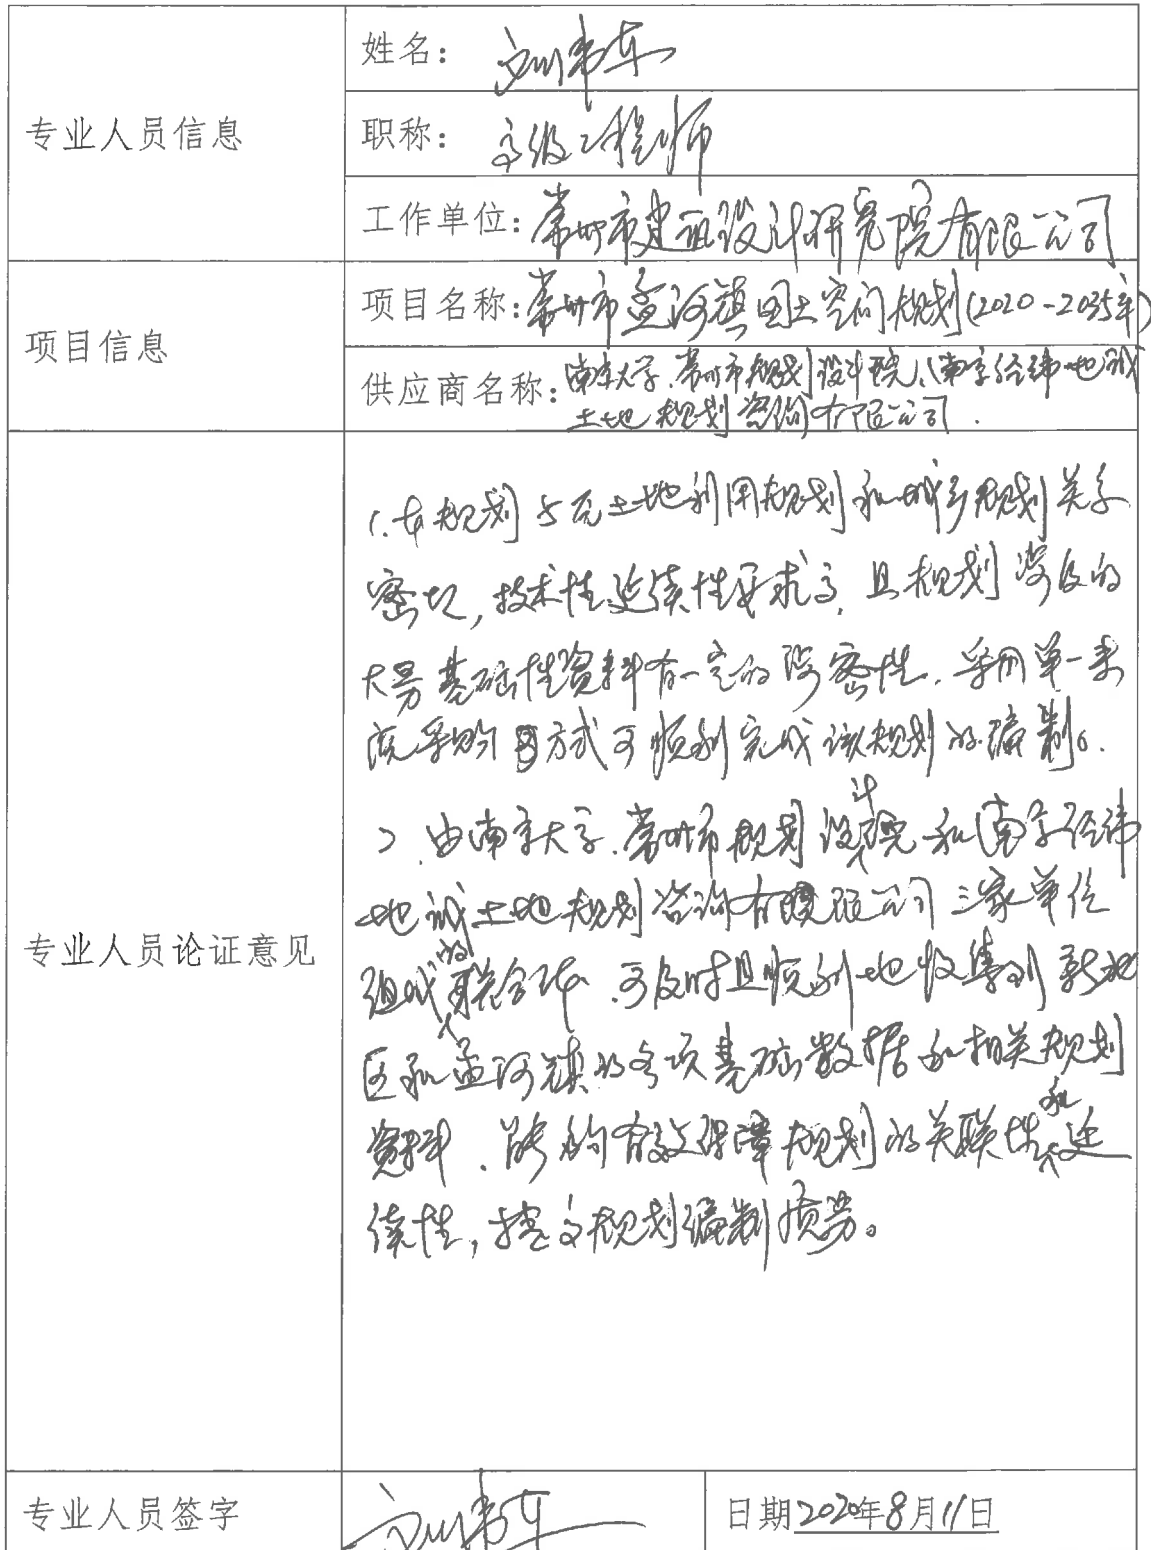 姓名：刘韦东
专业人员信息
职称：高级工程师
工作单位：常州市建筑设计研究院有限公司
项目信息
项目名称：常州市孟河镇国土空间规划(2020-2035年)
供应商名称：南京大学、常州市规划设计院、南京经纬地诚
土地规划咨询有限公司.
1.本规划与原土地利用规划和城乡规划关系
密切，技术性延续性要求高，且规划涉及的
大量基础性资料有一定的涉密性，采用单一来
源采购方式可顺利完成该规划的编制。
2、由南京大学、常州市规划设计院和南京经纬
地诚土地规划咨询有限公司三家单位
组成的联合体，可及时且顺利地收集到新北
区和孟河镇的各项基础数据和相关规划
资料，能够有效保障规划的关联性和延
续性，提高规划编制质量。
专业人员论证意见
专业人员签字 刘韦东 日期2020年8月11日